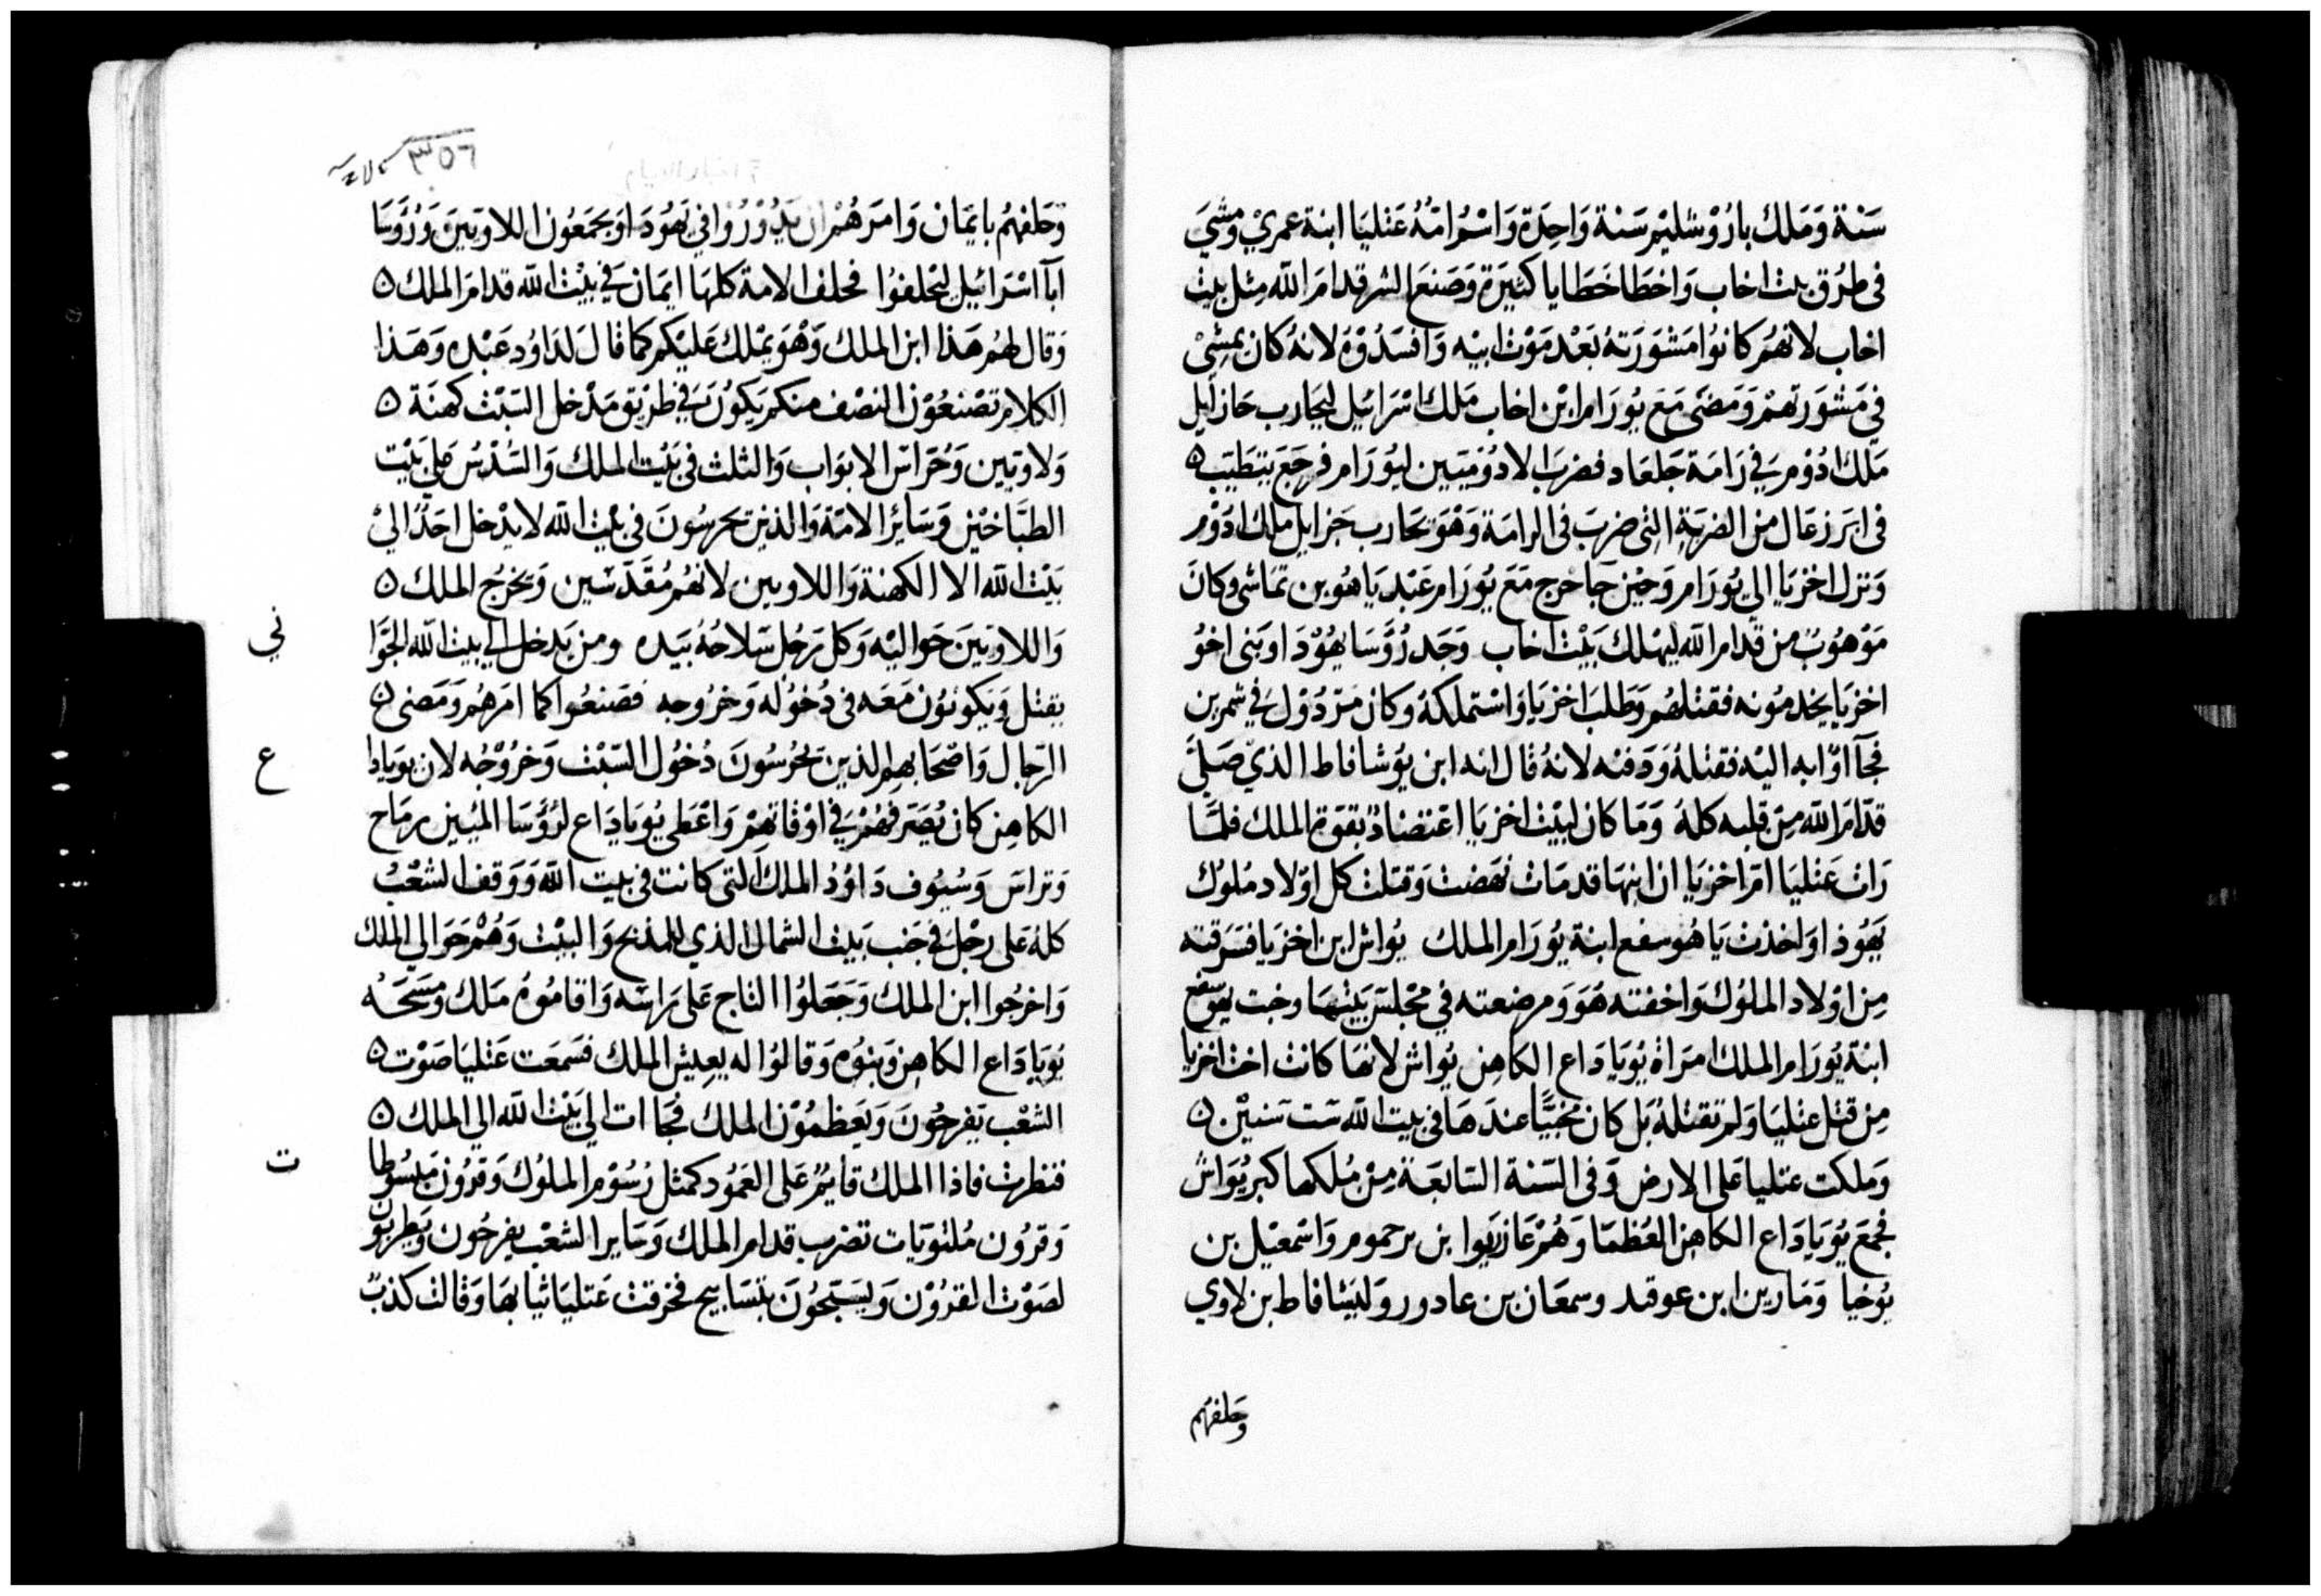 سَنة وَمَلك باُرُوْشليْم سَنة وَاحِدَة وَاسْم امّهُ عَتليَا ابنة عمري وَمشيَ
فى طرُق بيت اخاب وَاخطا خَطَايا كثيرَة وَصَنعَ الشر قدامَ الله مِثل بيْت
اخاب لانهُم كانوُا مَشوَرَتهُ بَعْد مَوْت ابيْه وَافسَدُوْهُ لانهُ كان يمْشِىْ
فيْ مَشوَرَتهمْ وَمَضَى مَعَ يُورَام ابْن اخاب مَلك اسْرَائيْل ليحَارب حَازايل
مَلك ادُوْم فيْ رَامَة جَلعَاد فضربَ الادُوْميّين ليُورَام فرجَعَ يتطيّب ۵
فى ابَرزعَال من الضربَة التى ضربَ فى الرامَة وَهْوَ يحَارب حَزايل مَلك ادَوْم
وَنزل اخزيَا الي يُورَام وَحيْن جَا خرج مَعَ يُورَام عَبْد يَاهوُ بن تمَاشى وكانَ
مَوْهُوبٌ من قدام الله ليهْلك بَيْت اخاب وَجَد رُؤسَا يهُوْدَا وَبَنى اخوُ
اخزيَا يخدمُونه فقتلهُم وَطلبَ اخزيَا وَاسْتملكهُ وكان مَرْدُوْل فيْ شمرين
فجَآ اوّا به اليْه فقتلهُ وَدَفنه لانهُ قال انه ابن يوُشافاط الذيْ صَليَ
قدّامَ الله مِن قلبه كلهُ وَمَا كان لبيْت اخزيَا اعْتضادٌ بقوَة الملك فلمَّا
رَات عَتليَا امّ اخزيَا ان ابنهَا قد مَات نهَضت وَقتلت كل اوْلاد مُلوُك
يَهَوُذا وَاخذت يَاهوُسفع ابنة يُورَام الملك يُواش ابن اخزيَا فسَرقته
مِن اوْلاد الملوُك وَاخفته هَوَ وَمرضعته في مجْلسَ بَيْتهَا وخبت يهَوسفع
ابنة يُورَام الملك امرَاة يُويَادَاع الكاهِن يُواش لانهَا كانت اخت اخزيَا
مِن قتل عتليَا وَلم تقتلهُ بَل كان مخبيًّا عندَهَا فى بيت الله سَت سَنيْن ۵
وَملكت عتليا عَلى الارض وَفى السّنة السَّابعَة مِنْ مُلكهَا كبر يُوَاش
فجمَعَ يُويَادَاع الكاهِن العُظمَا وَهُمْ عَازريَوا بن يرحموم وَاسْمعيْل بن
يُوخيا وَمَارين ابن عوقيد وسمعَان بن عادور وَليَشافاط بن لاوي
وَحَلفهُم
٣٥٦
وَحَلفهُم بايمَان وَامرَهُمْ ان يَدُوْرُوْا في يَهوُدَا وَيجمَعُون اللاويّينَ وَرُؤَسَا
ابآ اسْرَائيْل ليحْلفوُا فحلف الامة كلهَا ايمَان في بَيْت الله قدامَ الملك ۵
وَقال لهُم هَذا ابن الملك وَهْوَ يمْلك عَليْكم كما قالَ لدَاوُد عَبْده وَهَذا
الكلام تصْنعُوْن النصْف منكم يَكوُنَ في طريْق مَدْخل السَّبْت كهنَة ۵
وَلاويّين وَحُرّاس الابوَاب وَالثلث فى بَيْت الملك وَالسُّدُسْ علي بَيْت
الطبَّاخيْن وَسَائر الامّة وَالذيْن يحرسُونَ فى بيْت الله لا يدْخل احَدٌ اليْ
بَيْت الله الا الكهنة وَاللاويين لانهُم مُقدَّسْين وَيخرُج الملك ۵
وَاللاويّينَ حَواليْه وَكل رَجُل سَلاحُهُ بيَده ومن يَدخل الي بيت الله الجّوَا
يقتل وَيكوُنوُن مَعَه فى دُخوُله وَخرُوجه فصَنعُوا كما امَرهُم وَمَضى ۵
الرّجال وَاصْحَابهم الذين يحْرُسُونَ دُخُول السّبْت وَخرُوْجُه لان يويَادا
الكاهِن كان يُصَرّفهُمْ فيْ اوْقاتهِمْ وَاعْطى يُويَادَاع لرُؤسَا الميْين رمَاح
وَتراسَ وَسُيُوف دَاوُدْ الملك التى كانت فى بيت الله وَوَقف الشعْبُ
كلهُ عَلى رجْل في جَنب بَيت الشمال الذي للمذبح وَالبيْت وَهُمْ حَوَالي الملك
وَاخرجُوا ابن الملك وَجَعَلوُا التاج عَلى رَاسَه وَاقاموُهُ مَلك وَمسَحَهُ
يوُيَادَاع الكاهِن وَبنوُه وَقالوُا له يعيش الملك فسَمعَت عَتليَا صَوْت ۵
الشعْب يَفرحُونَ وَيَعَظمُوْن الملك فجَاات الي بَيْت الله الي الملك ۵
فنظرت فاذا الملك قايمٌ عَلى العَمُود كمثل رُسُوْم الملوُك وَقرُون مَبسُوطا
وَقرُون مُلتويَات تضرب قدام الملك وَسَاير الشعْب يفرحُون وَيَطربوُن
لصَوْت القرُوْن وَيسَبّحُونَ بتسَابيح فخرقت عَتليَا ثيَابهَا وَقالت كذبٌ
ني
ع
ت